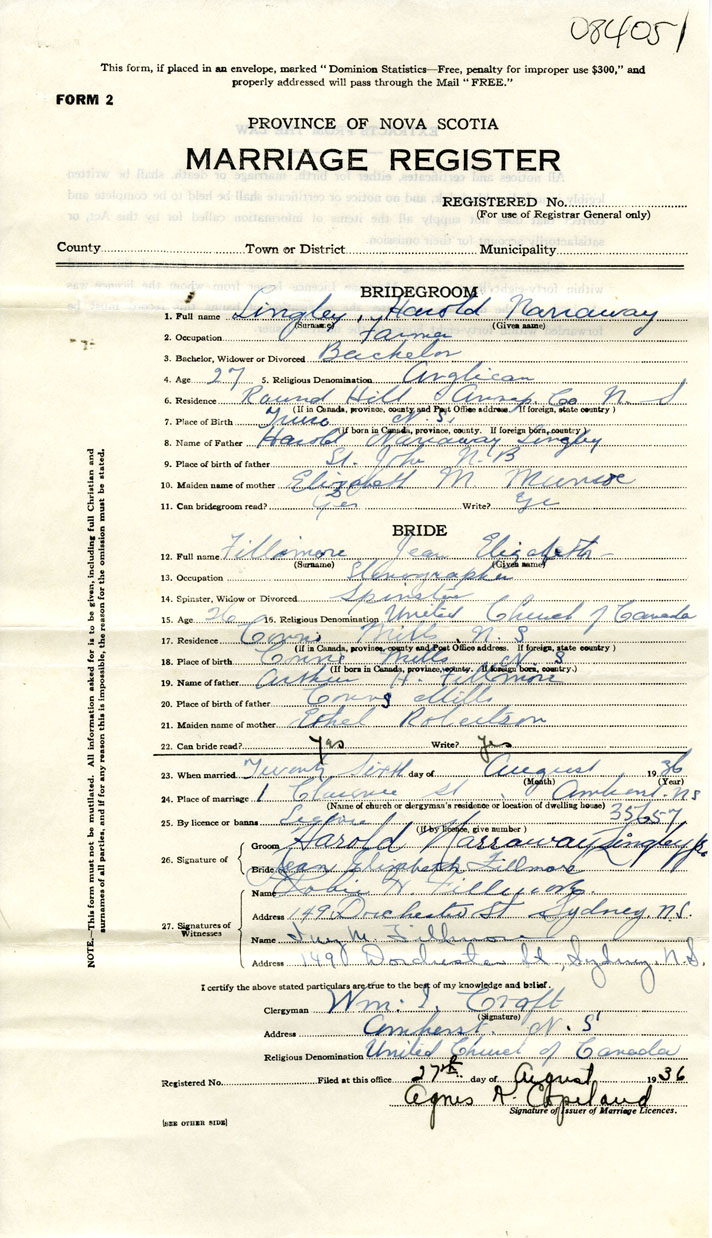 084051
This form, if placed in an envelope, marked "Dominion Statistics—Free, penalty for improper use $300," and
properly addressed will pass through the Mail "FREE."
FORM 2
PROVINCE OF NOVA SCOTIA
MARRIAGE REGISTER
REGISTERED No.
(For use of Registrar General only)
County Town or District Municipality
BRIDEGROOM
1. Full name Lingley, Harold Narraway
(Surname) (Given name)
2. Occupation Farmer
3. Bachelor, Widower or Divorced Bachelor
4. Age 27 5. Religious Denomination Anglican
6. Residence Round Hill Annap. Co N. S
(If in Canada, province, county and Post Office address. If foreign, state country)
7. Place of Birth Truro N. S.
(If born in Canada, province, county. If foreign born, country)
8. Name of Father Harold Narraway Lingley
9. Place of birth of father St. John N. B
10. Maiden name of mother Elizabeth M Munroe
11. Can bridegroom read? Yes Write? Yes
BRIDE
12. Full name Fillmore Jean Elizabeth
(Surname) (Given name)
13. Occupation Stenographer
14. Spinster, Widow or Divorced Spinster
15. Age 26 16. Religious Denomination United Church of Canada
17. Residence Mills, N. S
(If in Canada, province, county and Post Office address. If foreign, state country)
18. Place of birth Mills N. S
(If born in Canada, province, county. If foreign born, country.)
19. Name of father Arthur H. Fillmore
20. Place of birth of father Mills
21. Maiden name of mother Ethel Robertson
22. Can bride read? Yes Write? Yes
23. When married Twenty Sixth day of August 1936
(Month) (Year)
24. Place of marriage 1 Clarence St. Amherst. NS
(Name of church or clergyman's residence or location of dwelling house)
25. By licence or banns License 35657
(If by licence, give number)
26. Signature of
Groom Harold Narraway Lingley Jr.
Bride Jean Elizabeth Fillmore
27. Signatures of Witnesses
Name H. Fillmore
Address 149 Dorchester St Sydney, N.S.
Name M. Fillmore
Address 149 Dorchester St, Sydney, N.S.
I certify the above stated particulars are true to the best of my knowledge and belief.
Clergyman Wm. I. Croft
(Signature)
Address Amherst. N. S
Religious Denomination United Church of Canada
Registered No. Filed at this office 27th day of August 1936
Agnes A. Copeland
Signature of Issuer of Marriage Licences.
[SEE OTHER SIDE]
NOTE.—This form must not be mutilated. All information asked for is to be given, including full Christian and
surnames of all parties, and if for any reason this is impossible, the reason for the omission must be stated.